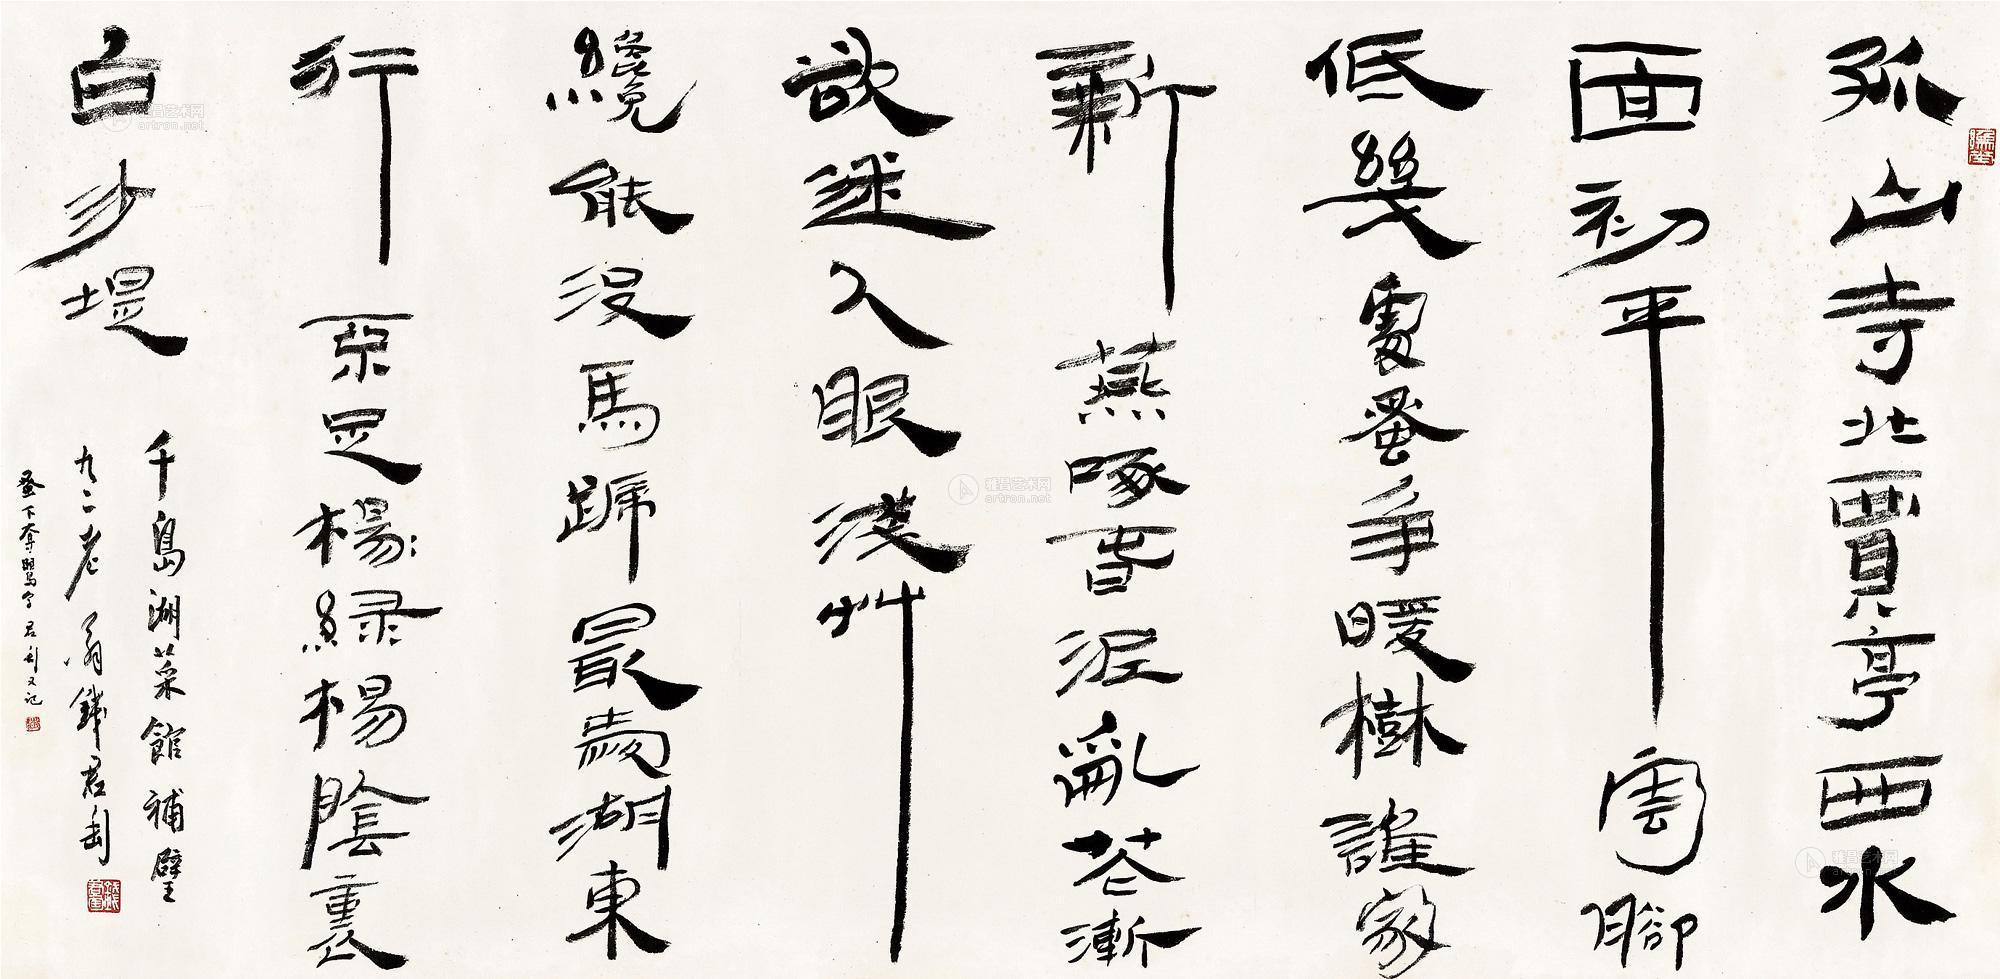 孤山寺北賈亭西水
面初平雲腳
低幾處蚤爭暖樹誰家
新燕啄春泥亂花漸
欲迷人眼淺艸
纔能沒馬蹄最愛湖東
行不足楊綠楊陰裏
白沙堤
千島湖菜館補壁
九二老翁錢君匋
蚤下奪鶯字君匋又記
雅昌艺术网
artron.net